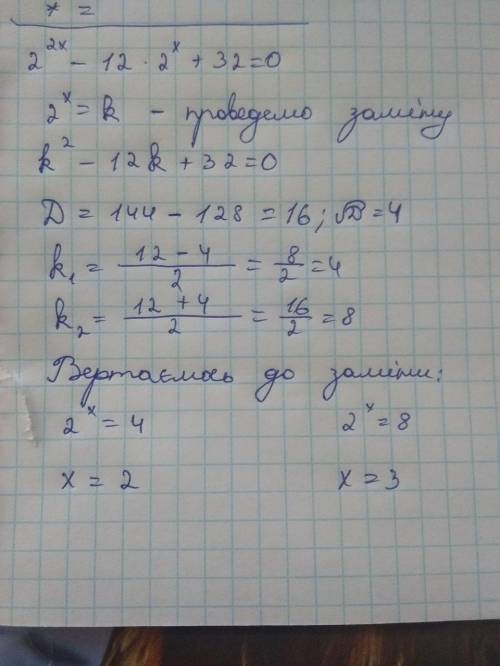 * =
2^{2x} - 12 · 2^x + 32 = 0
2^x = k - проведемо заміну
k^2 - 12k + 32 = 0
Д = 144 - 128 = 16; √D = 4
k_1 = \frac{12 - 4}{2} = \frac{8}{2} = 4
k_2 = \frac{12 + 4}{2} = \frac{16}{2} = 8
Вертаємось до заміни:
2^x = 4 2^x = 8
x = 2 x = 3